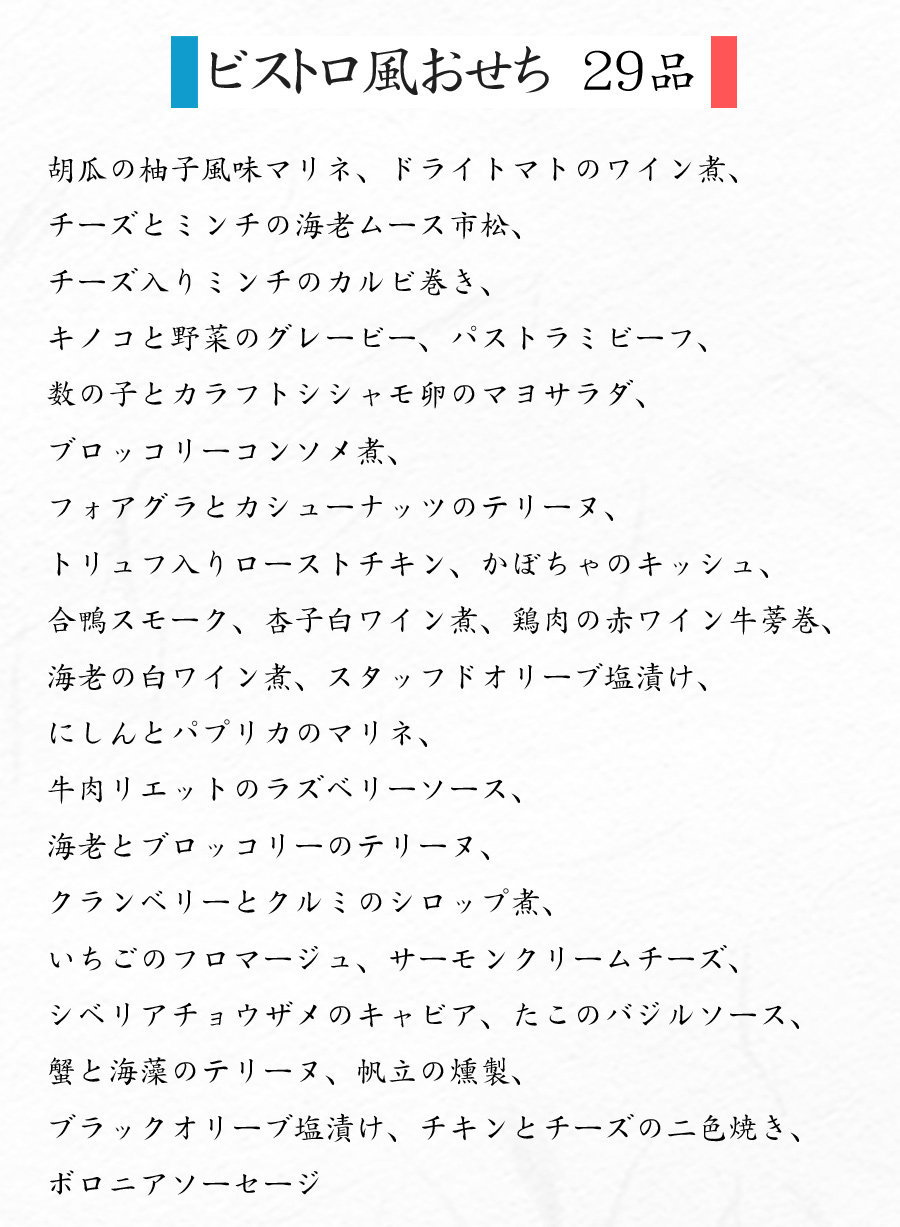 ビストロ風おせち 29品
胡瓜の柚子風味マリネ、ドライトマトのワイン煮、
チーズとミンチの海老ムース市松、
チーズ入りミンチのカルビ巻き、
キノコと野菜のグレービー、パストラミビーフ、
数の子とカラフトシシャモ卵のマヨサラダ、
ブロッコリーコンソメ煮、
フォアグラとカシューナッツのテリーヌ、
トリュフ入りローストチキン、かぼちゃのキッシュ、
合鴨スモーク、杏子白ワイン煮、鶏肉の赤ワイン牛蒡巻、
海老の白ワイン煮、スタッフドオリーブ塩漬け、
にしんとパプリカのマリネ、
牛肉リエットのラズベリーソース、
海老とブロッコリーのテリーヌ、
クランベリーとクルミのシロップ煮、
いちごのフロマージュ、サーモンクリームチーズ、
シベリアチョウザメのキャビア、たこのバジルソース、
蟹と海藻のテリーヌ、帆立の燻製、
ブラックオリーブ塩漬け、チキンとチーズの二色焼き、
ボロニアソーセージ